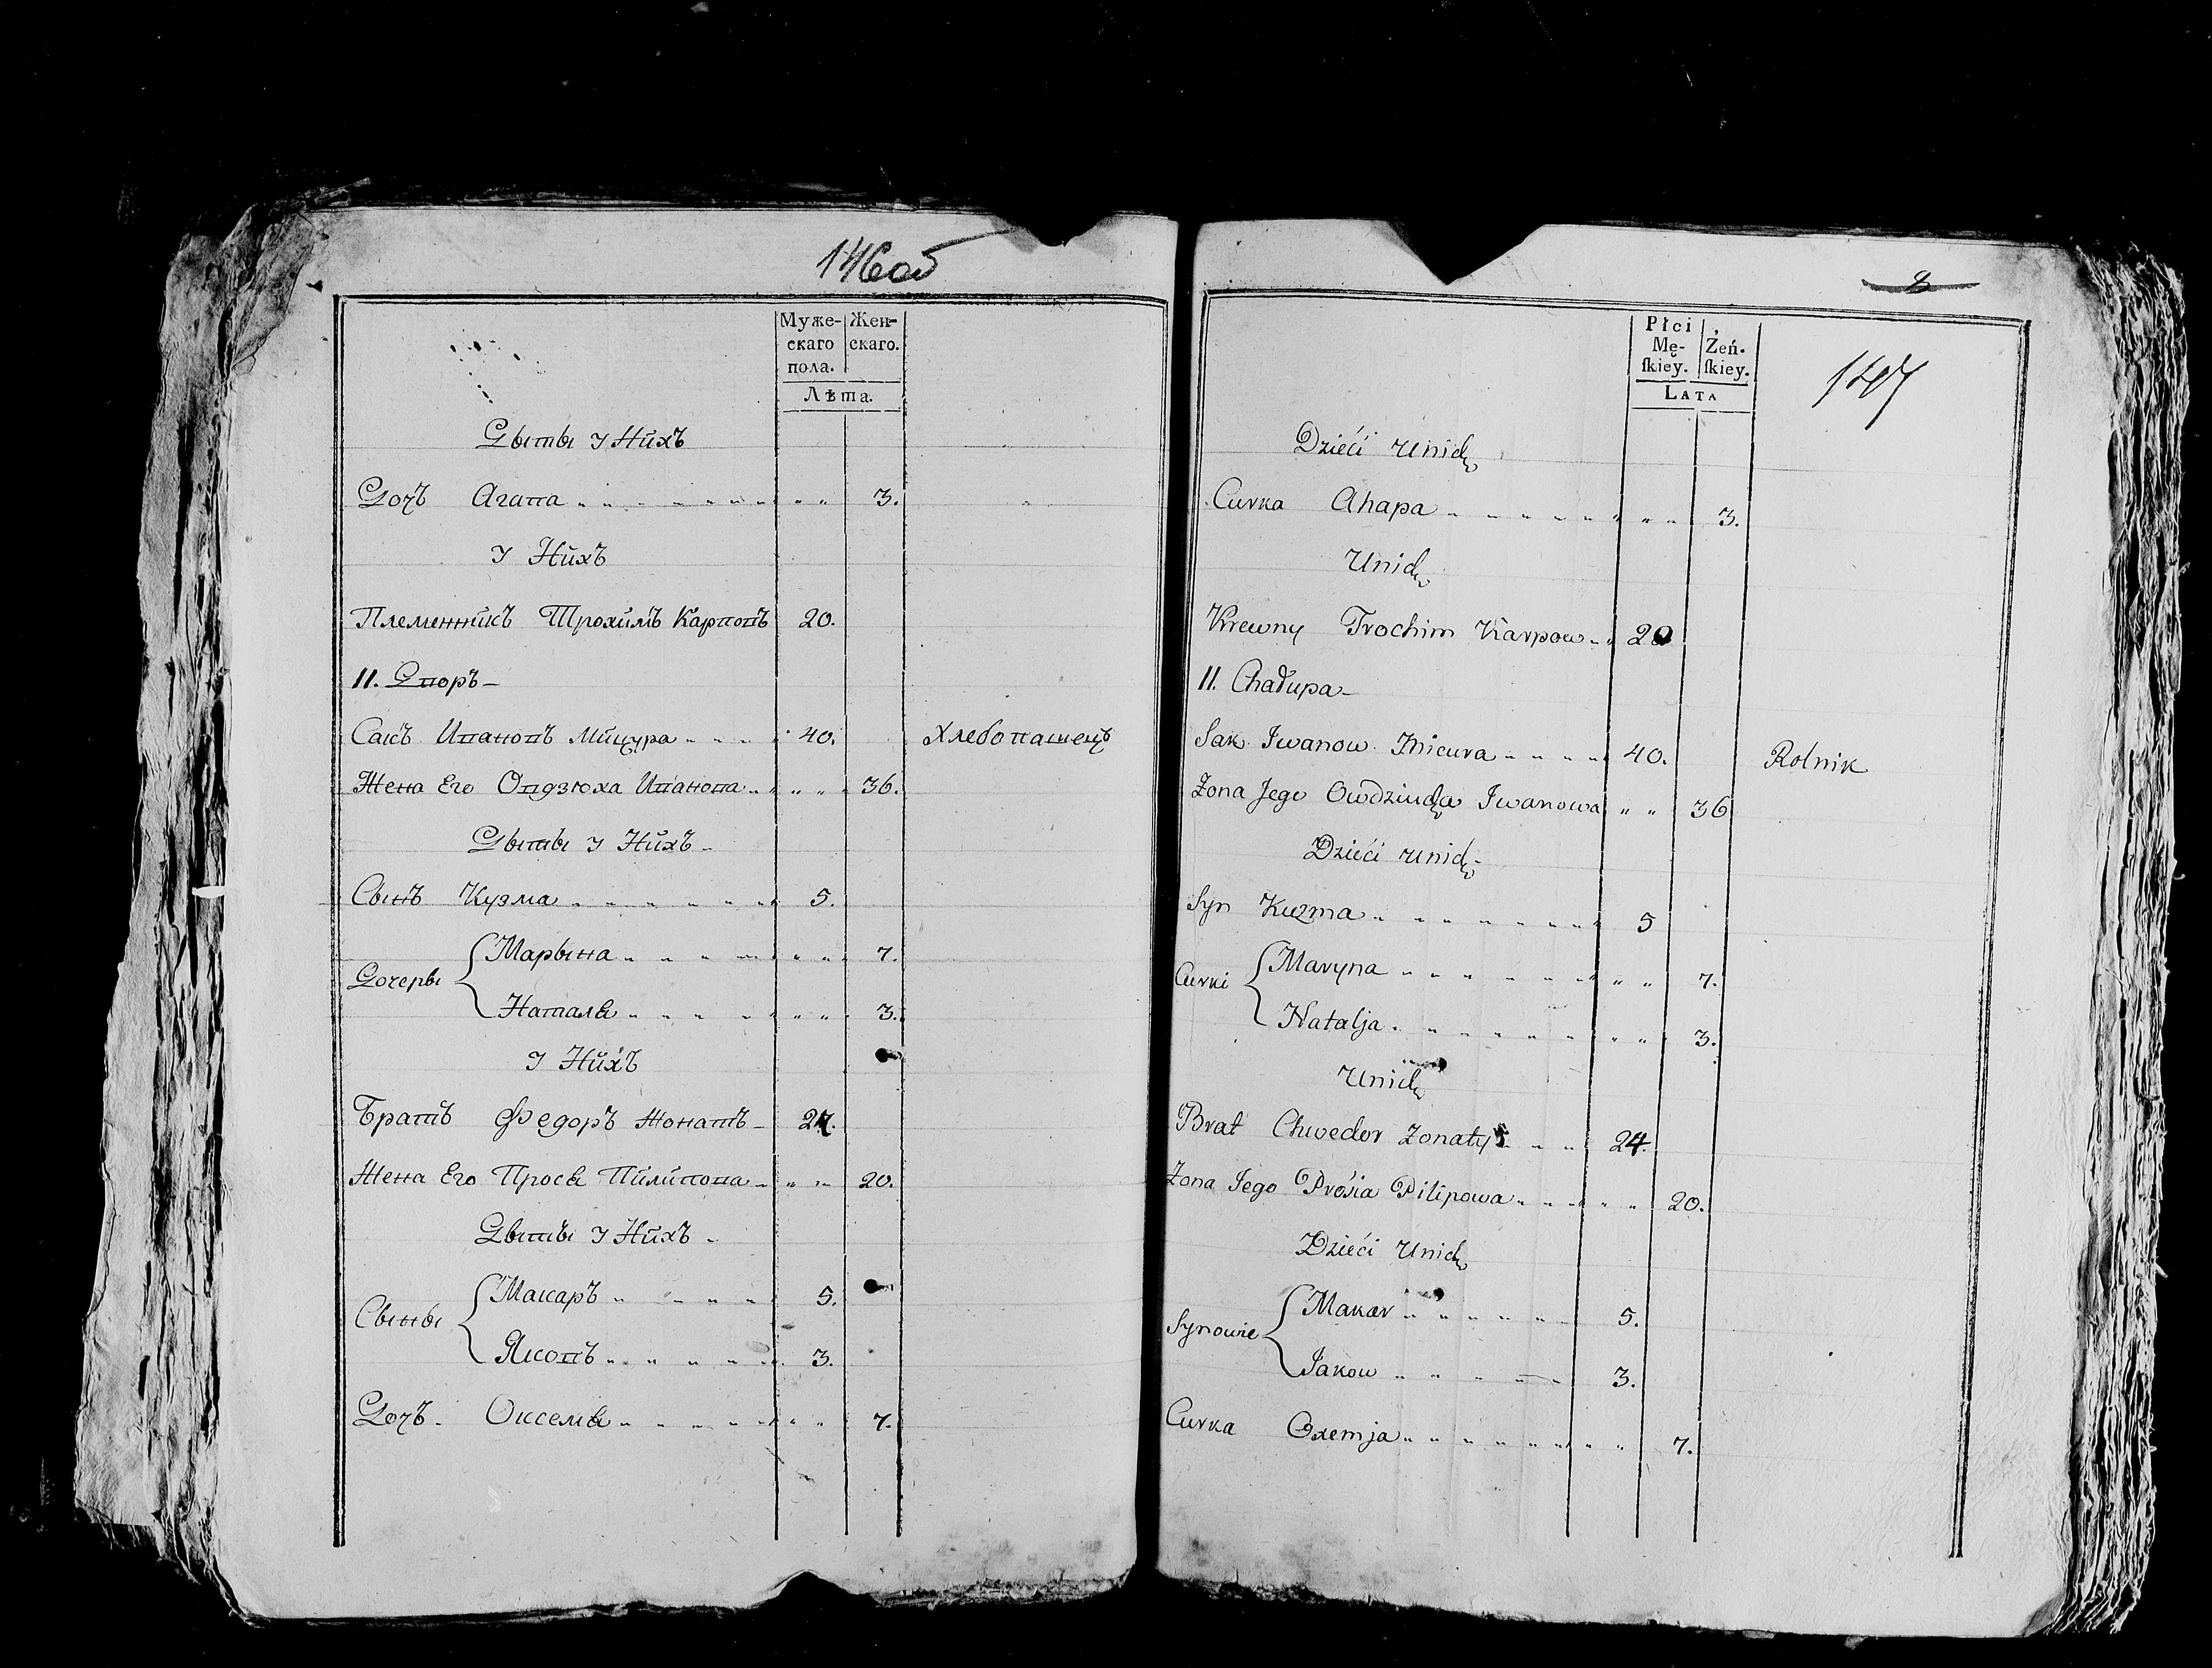 146об
Муже-
скаго
пола.
Жен-
скаго.
Лѣта.
Дѣти у Нихъ
Дочь Агапа 3.
у Нихъ
Племенникъ Трохимъ Карповъ 20.
11. Дворъ
Сакъ Ивановъ Мицура 40. Хлебопашецъ
Жена Его Овдзюха Иванова 36.
Дѣти у Нихъ
Сынъ Кузма 5.
Дочери
Марына 7.
Наталя 3.
у Нихъ
Братъ Федоръ Жонатъ 24.
Жена Его Прося Пилипова 20.
Дѣти у Нихъ
Сыны
Макаръ 5.
Яковъ 3.
Дочь Оксемя 7.
8
147
Płci
Mę-
ſkiey.
Żeń-
ſkiey.
LATA
Dzieći u nich
Curka Ahapa 3.
U nich
Krewny Trochim Karpow 20
11. Chałupa
Sak Iwanow Micura 40. Rolnik
Zona Jego Owdziucha Iwanowa 36
Dzieći u nich
Syn Kuzma 5
Curki
Maryna 7.
Natalja 3.
U nich
Brat Chwedor Zonaty 24.
Zona Jego Prośia Pilipowa 20.
Dzieći U nich
Synowie
Makar 5.
Jakow 3.
Curka Oxemja 7.